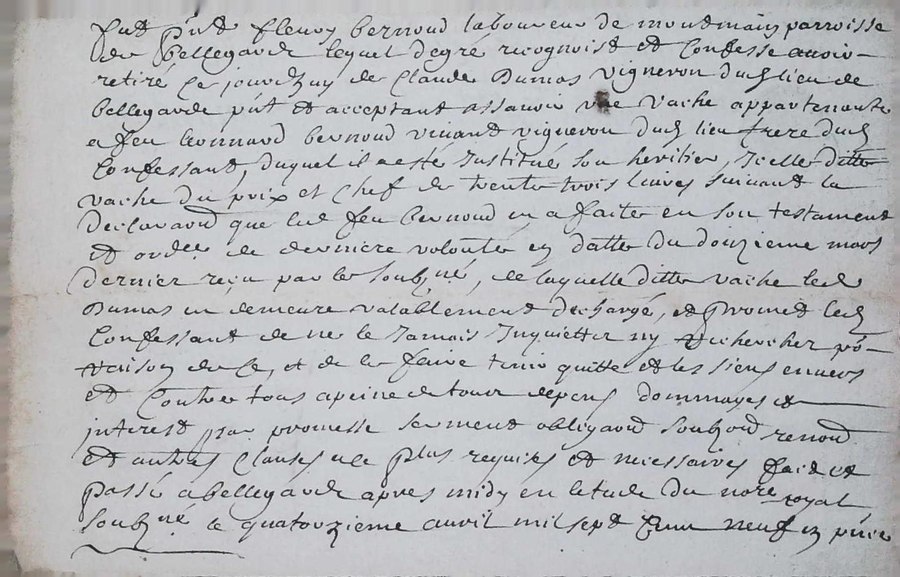 fut pnt fleury bernoud laboureur de montmain parroisse
de bellegarde lequel degré recognoist et Confesse avoir
retiré Ce jourdhuy de Claude Dumas vigneron dud lieu de
bellegarde pnt et acceptant assavoir une vache appartenante
a feu leonnard bernoud vivant vigneron dud lieu frere dud
Confessant, duquel il a esté Institué son heritier, Icelle ditte
vache du prix et Chef de trente trois livres suivant la
declaraon que led feu bernoud en a faite en son testament
et ordce de derniere volonté en datte du douzieme mars
dernier reçu par le soubzné, de laquelle ditte vache led
Dumas en demeure valablement dechargé, et promet led
Confessant de ne le Jamais Inquietter ny rechercher po
raison de ce, et de le faire tenir quitte et les siens envers
et Contre tous a peine de tous depens dommages et
interest par promesse serment obligaon soubzon renon
et autres Clauses les plus requises et necessaires fait et
passé a bellegarde apres midy en letude du nore royal
soubzné le quatorzieme avril mil sept neuf en pnce